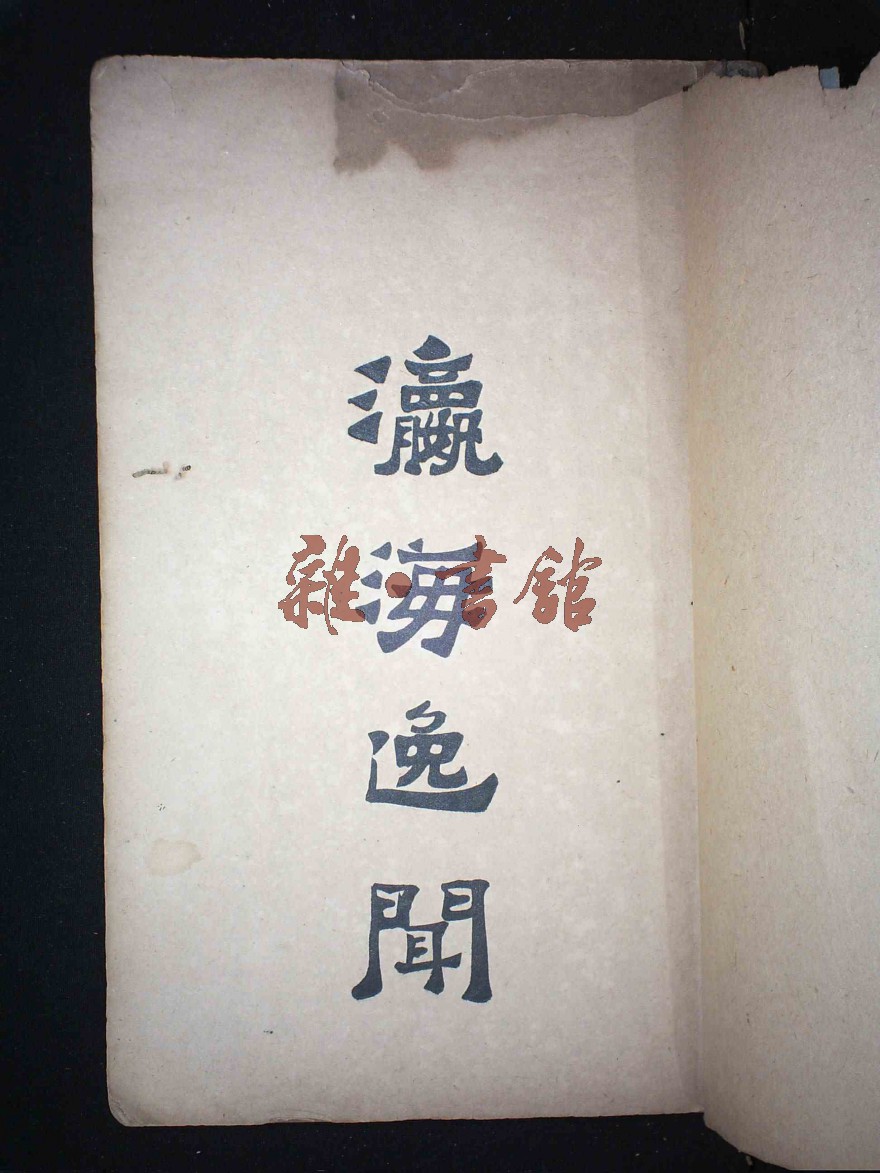 瀛海逸聞
雜·書舘